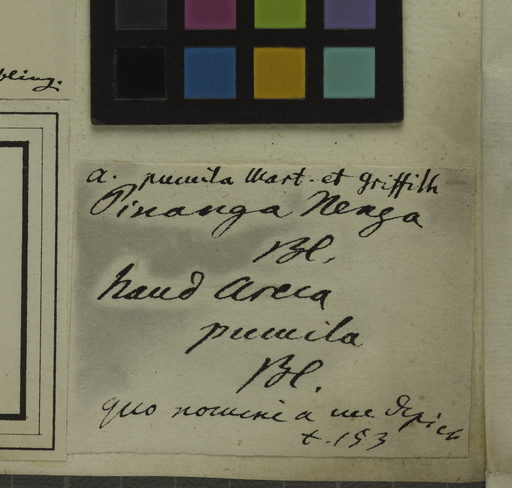 bling.
a. pumila Mart. et Griffith
Pinanga Nenga
Bl.
haud Areca
pumila
Bl.
quo nomine a me depict
t. 153